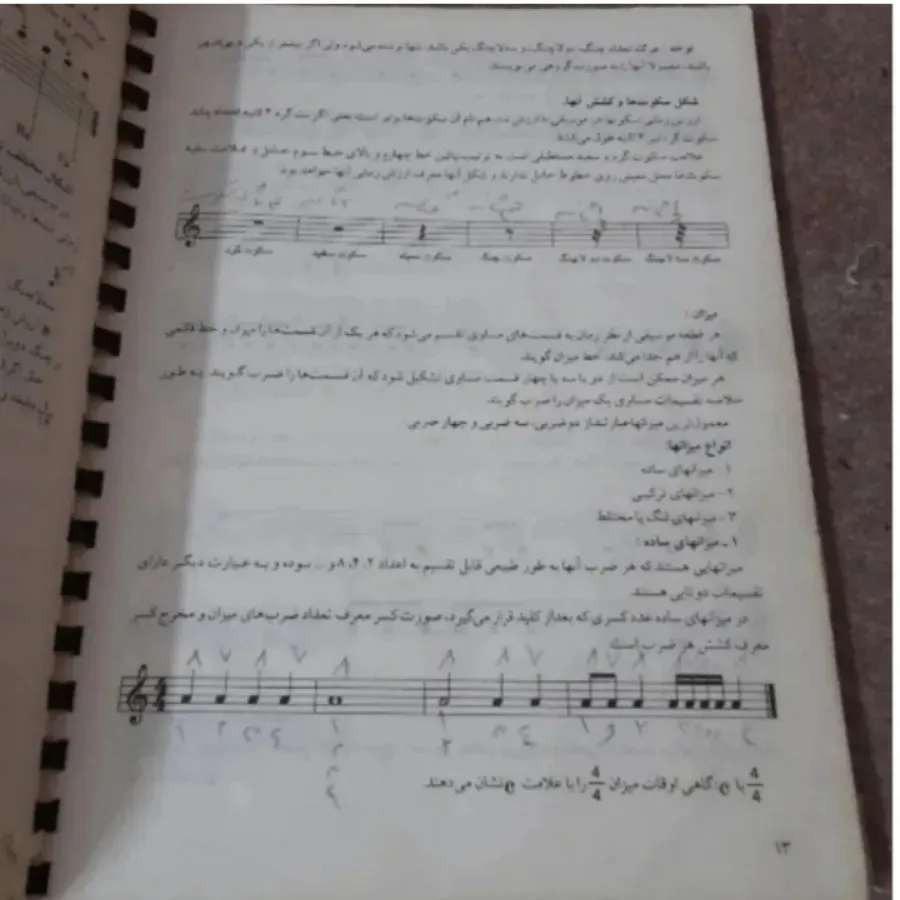 توجه : هرگاه تعداد چنگ، دولاچنگ و سه‌لاچنگ یکی باشد، تنها نوشته می‌شود ولی اگر بیشتر از یکی
باشند، معمولاً آنها را به صورت گروهی می‌نویسند.
شکل سکوت‌ها و کشش آنها.
ارزش زمانی سکوتها در موسیقی با ارزش نت هم نام آن سکوت‌ها برابر است یعنی اگر نت گرد ۴ ثانیه امتداد یابد
سکوت گرد نیز ۴ ثانیه طول می‌کشد.
علامت سکوت گرد و سفید مستطیلی است به ترتیب پائین خط چهارم و بالای خط سوم حامل و علامت سفید
سکوت‌ها محل معینی روی خطوط حامل ندارند و شکل آنها معرف ارزش زمانی آنها خواهد بود.
سکوت گرد سکوت سفید سکوت سیاه سکوت چنگ سکوت دولاچنگ سکوت سه لاچنگ
میزان :
هر قطعه موسیقی از نظر زمان به قسمت‌های مساوی تقسیم می‌شود که هر یک از آن قسمت‌ها را میزان و خط قائمی
که آنها را از هم جدا می‌کند، خط میزان گویند.
هر میزان ممکن است از دو یا سه یا چهار قسمت مساوی تشکیل شود که آن قسمت‌ها را ضرب گویند. به طور
خلاصه تقسیمات مساوی یک میزان را ضرب گویند.
معمول‌ترین میزانها عبارتند از دو ضربی، سه ضربی و چهار ضربی
انواع میزانها:
۱- میزانهای ساده
۲- میزانهای ترکیبی
۳- میزانهای لنگ یا مختلط
۱ـ میزانهای ساده :
میزانهایی هستند که هر ضرب آنها به طور طبیعی قابل تقسیم به اعداد ۲، ۴، ۸ و ... بوده و به عبارت دیگر دارای
تقسیمات دوتایی هستند.
در میزانهای ساده عدد کسری که بعد از کلید قرار می‌گیرد، صورت کسر معرف تعداد ضرب‌های میزان و مخرج کسر
معرف کشش هر ضرب است.
4/4
۱ ۲ ۳ ۴ ۱ ۱ ۲ ۳ ۴ ۱ و ۲
۲
۳
۴
4/4 یا e: گاهی اوقات میزان 4/4 را با علامت e نشان می‌دهند.
۱۳